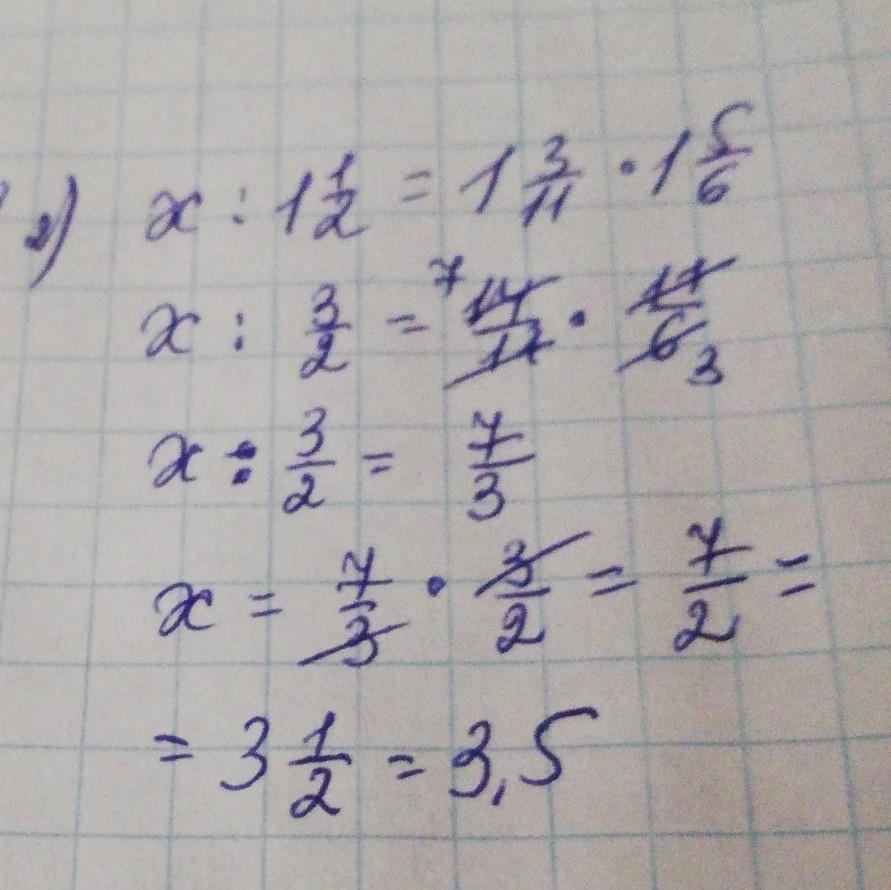 2) x : 1 1/2 = 1 3/11 · 1 5/6
x : 3/2 = 7 14/11 · 11/6 3
x : 3/2 = 7/3
x = 7/3 · 3/2 = 7/2 =
= 3 1/2 = 3,5